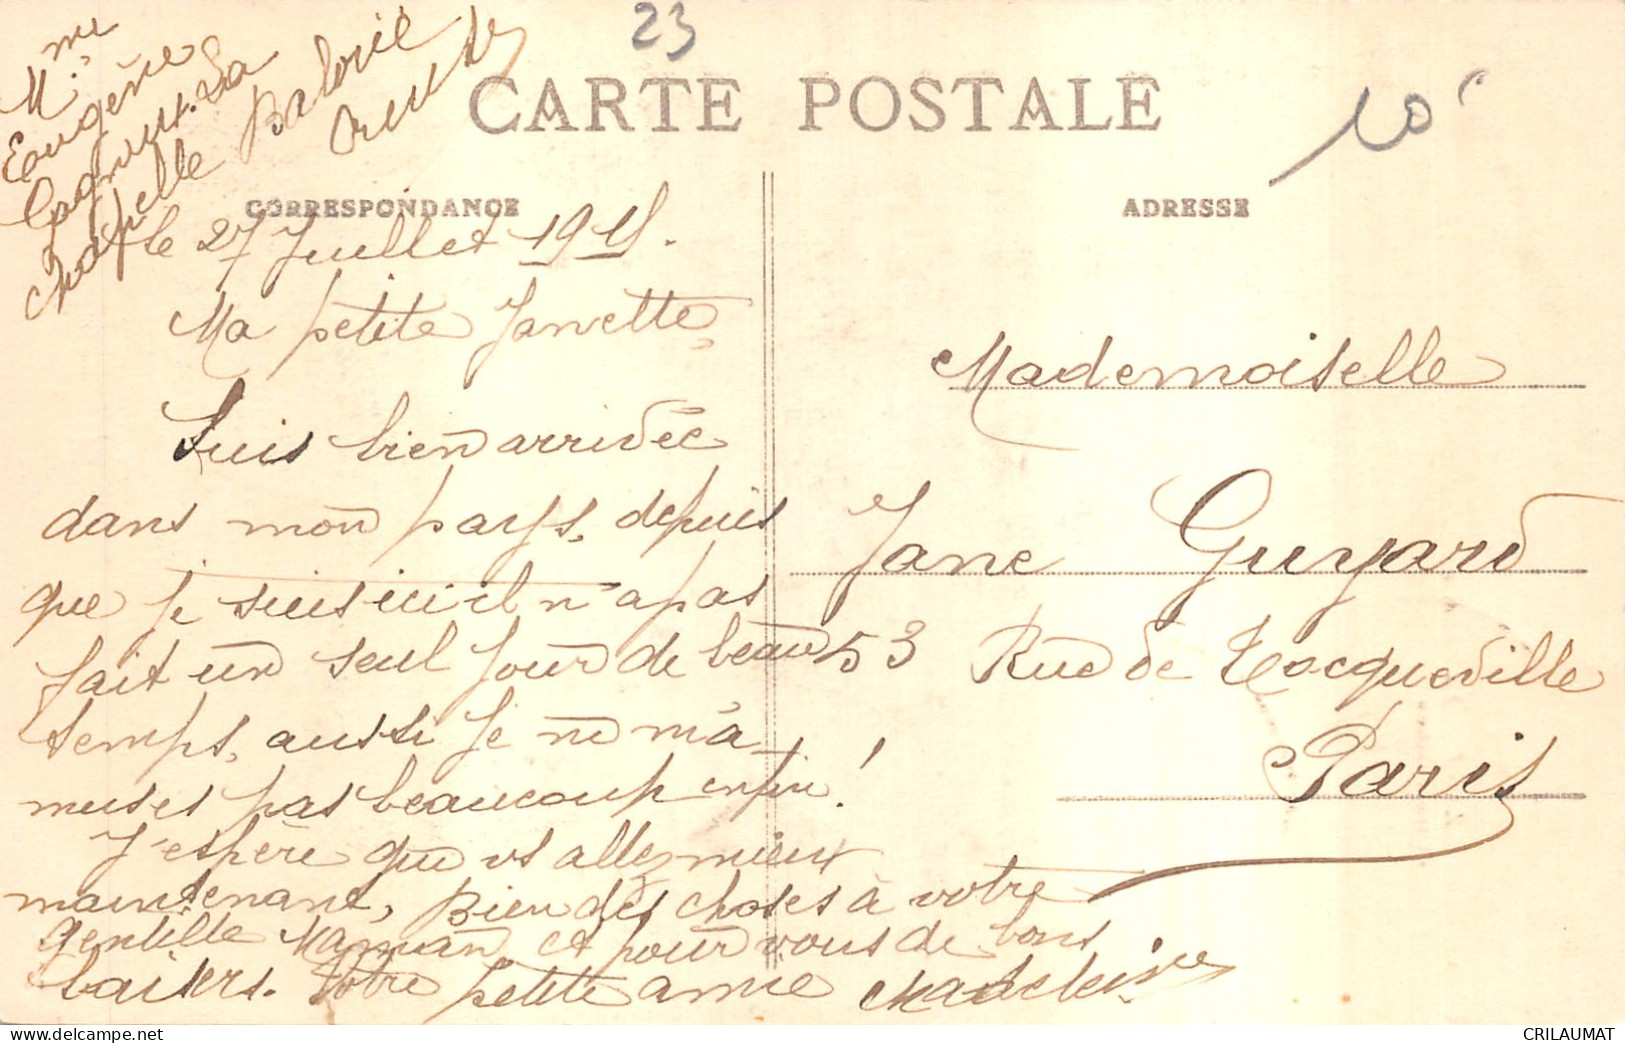 23
Mme
Eugène
La
Chapelle Baloue
Creuse
CARTE POSTALE
10c
CORRESPONDANCE
ADRESSE
le 27 Juillet 1915.
Ma petite Janette,
Suis bien arrivée
dans mon pays, depuis
que je suis ici il n'a pas
fait un seul jour de beau
temps, aussi je ne m'a
muses pas beaucoup enfin!
J'espère que vs allez mieux
maintenant, Bien des choses à votre
gentille Maman et pour vous de bons
baisers. Votre petite amie Madeleine
Mademoiselle
Jane Guyard
53 Rue de Tocqueville
Paris
CRILAUMAT